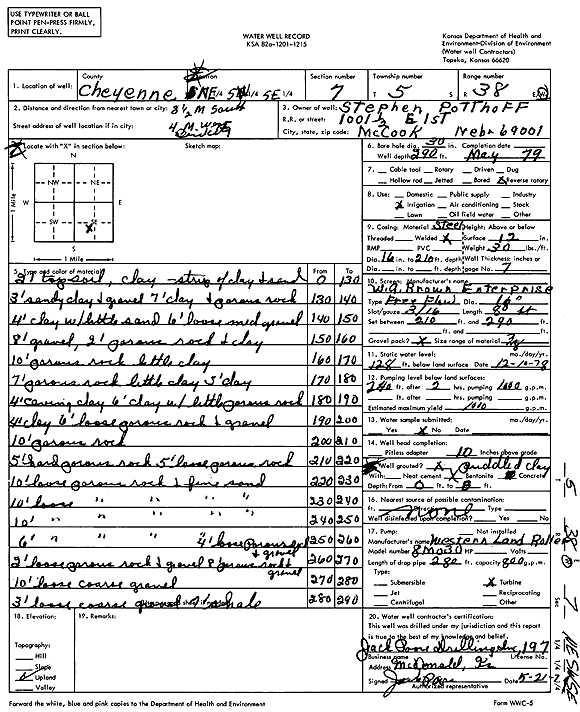 USE TYPEWRITER OR BALL
POINT PEN-PRESS FIRMLY,
PRINT CLEARLY.
WATER WELL RECORD
KSA 82a-1201-1215
Kansas Department of Health and
Environment-Division of Environment
(Water well Contractors)
Topeka, Kansas 66620
1. Location of well:
County
Cheyenne
NE 1/4 SW 1/4 SE 1/4
Section number
7
Township number
T 5 S
Range number
R 38 E/W
2. Distance and direction from nearest town or city: 3 1/2 M South
4 M. West
Street address of well location if in city:
3. Owner of well: Stephen Potthoff
R.R. or street: 1001 1/2 E 1st
City, state, zip code: McCook Nebr 69001
4. Locate with "X" in section below:
Sketch map:
N
NW NE
W E
SW SE
X
S
1 Mile
1 Mile
6. Bore hole dia. 30 in. Completion date
Well depth 290 ft. May 79
7. Cable tool Rotary Driven Dug
Hollow rod Jetted Bored X Reverse rotary
8. Use: Domestic Public supply Industry
X Irrigation Air conditioning Stock
Lawn Oil field water Other
9. Casing: Material Steel Height: Above or below
Threaded Welded X Surface 12 in.
RMP PVC Weight 30 lbs./ft.
Dia. 16 in. to 210 ft. depth Wall Thickness: inches or
Dia. in. to ft. depth gage No. 7
5. Type and color of material From To
2' top soil, clay - strip of clay & sand 0 130
3' sandy clay & gravel 7' clay & porous rock 130 140
4' clay w/ little sand 6' loose med gravel 140 150
8' gravel, 2' porous rock & clay 150 160
10' porous rock little clay 160 170
7' porous rock little clay 3' clay 170 180
4' caving clay 6' clay w/ little porous rock 180 190
4' clay 6' loose porous rock & gravel 190 200
10' porous rock 200 210
5' hard porous rock 5' loose porous rock 210 220
10' loose porous rock & fine sand 220 230
10' loose " " " 230 240
10' " " " 240 250
6' " " 4' loose porous rock & gravel 250 260
2' loose porous rock & gravel 8' porous rock & gravel 260 270
10' loose coarse gravel 270 280
3' loose coarse gravel 7' shale 280 290
10. Screen: Manufacturer's name
W.A. Brown Enterprise
Type Free Flow Dia. 16"
Slot/gauze 3/16 Length 80 ft
Set between 210 ft. and 290 ft.
ft. and ft.
Gravel pack? X Size range of material 3/8
11. Static water level: mo./day/yr.
128 ft. below land surface Date 12-10-78
12. Pumping level below land surfaces:
240 ft. after 2 hrs. pumping 1000 g.p.m.
ft. after hrs. pumping g.p.m.
Estimated maximum yield 1000 g.p.m.
13. Water sample submitted: mo./day/yr.
Yes X No Date
14. Well head completion:
Pitless adapter 10 Inches above grade
15. Well grouted? X puddled clay
With: Neat cement X Bentonite Concrete
Depth: From 0 ft. to 8 ft.
16. Nearest source of possible contamination:
ft. None Direction Type
Well disinfected upon completion? Yes No
17. Pump: Not installed
Manufacturer's name Western Land Roller
Model number 8M030 HP Volts
Length of drop pipe 280 ft. capacity 800 g.p.m.
Type:
Submersible X Turbine
Jet Reciprocating
Centrifugal Other
18. Elevation:
19. Remarks:
Topography:
Hill
Slope
Upland
Valley
20. Water well contractor's certification:
This well was drilled under my jurisdiction and this report
is true to the best of my knowledge and belief.
Jack Poore Drilling Inc, 197
Business name License No.
Address McDonald, Ks
Signed Jack Poore 5-21-79
Authorized representative
Forward the white, blue and pink copies to the Department of Health and Environment
Form WWC-5
5 38 W 7 NE SW SE
Sec 1/4 1/4 1/4